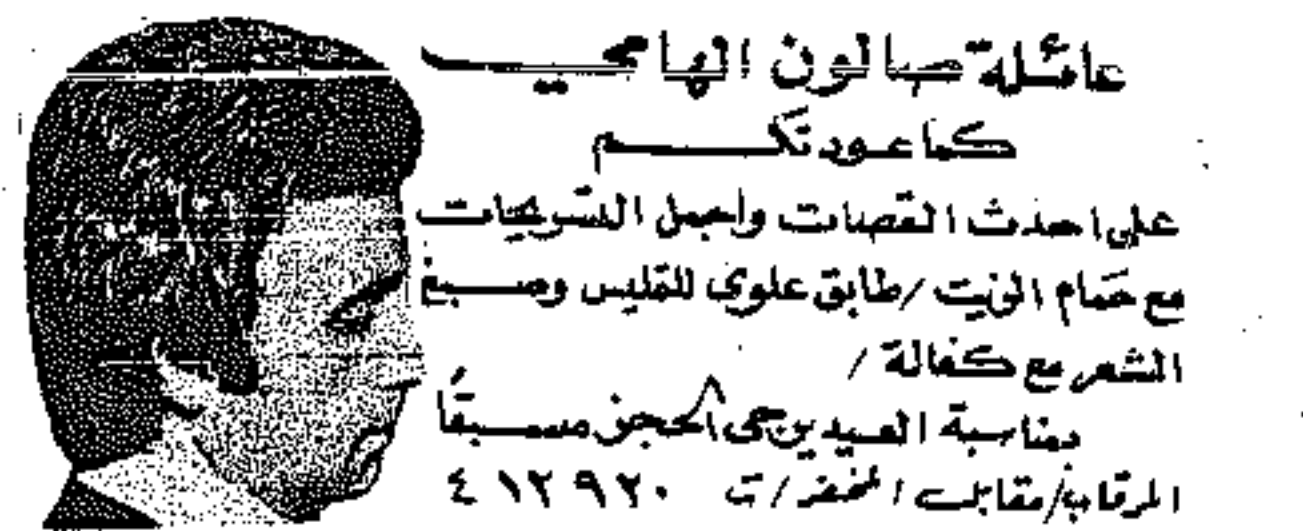 عائلة صالون الهامي
كما عودتكم
على احدث القصات واجمل التسريحات
مع حمام الزيت / طابق علوي للتمليس وصبغ
الشعر مع كفالة /
بمناسبة العيد يرجى الحجز مسبقاً
المرقاب / مقابل المخفر / ت ٤١٢٩٢٠